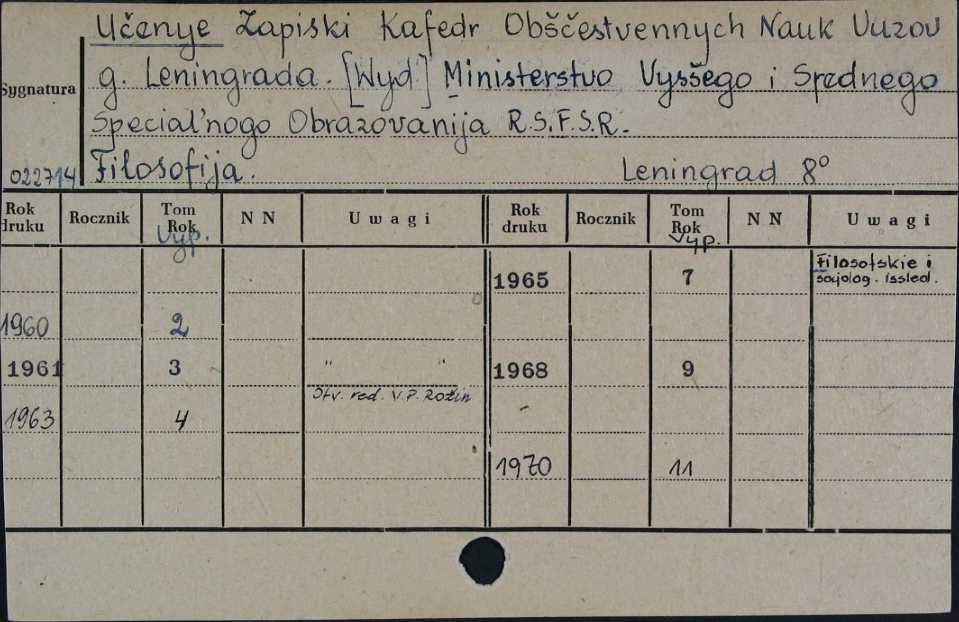 Učenye Zapiski Kafedr Obščestvennych Nauk Vuzov
Sygnatura g. Leningrada. [Wyd] Ministerstvo Vysšego i Srednego
Special'nogo Obrazovanija R.S.F.S.R.
022714 Filosofija. Leningrad 8°
Rok druku Rocznik Tom Rok Vyp. N N Uwagi Rok druku Rocznik Tom Rok Vyp. N N Uwagi
1965 7 Filosofskie i socjolog. issled.
1960 2
1961 3 " " 1968 9
Otv. red. V.P. Rožin
1963 4
1970 11